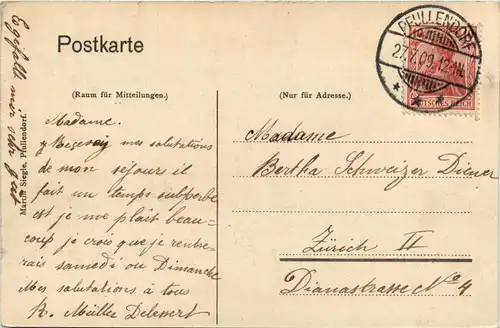 Postkarte
PFULLENDORF
27.7.09.
DEUTSCHES REICH
(Raum für Mitteilungen.)
(Nur für Adresse.)
Madame.
mes salutations
de mon séjours il
fait un temps subperbe
est je me plait beau-
coup je crois que je rentre-
rais samedi ou Dimanche
Mes salutations à tous
R. Müller Delessert
Es gefällt mir sehr gut
Martin Siegle, Pfullendorf.
Madame
Bertha Schweizer Diener
Zürich II
Dianastrasse No 4